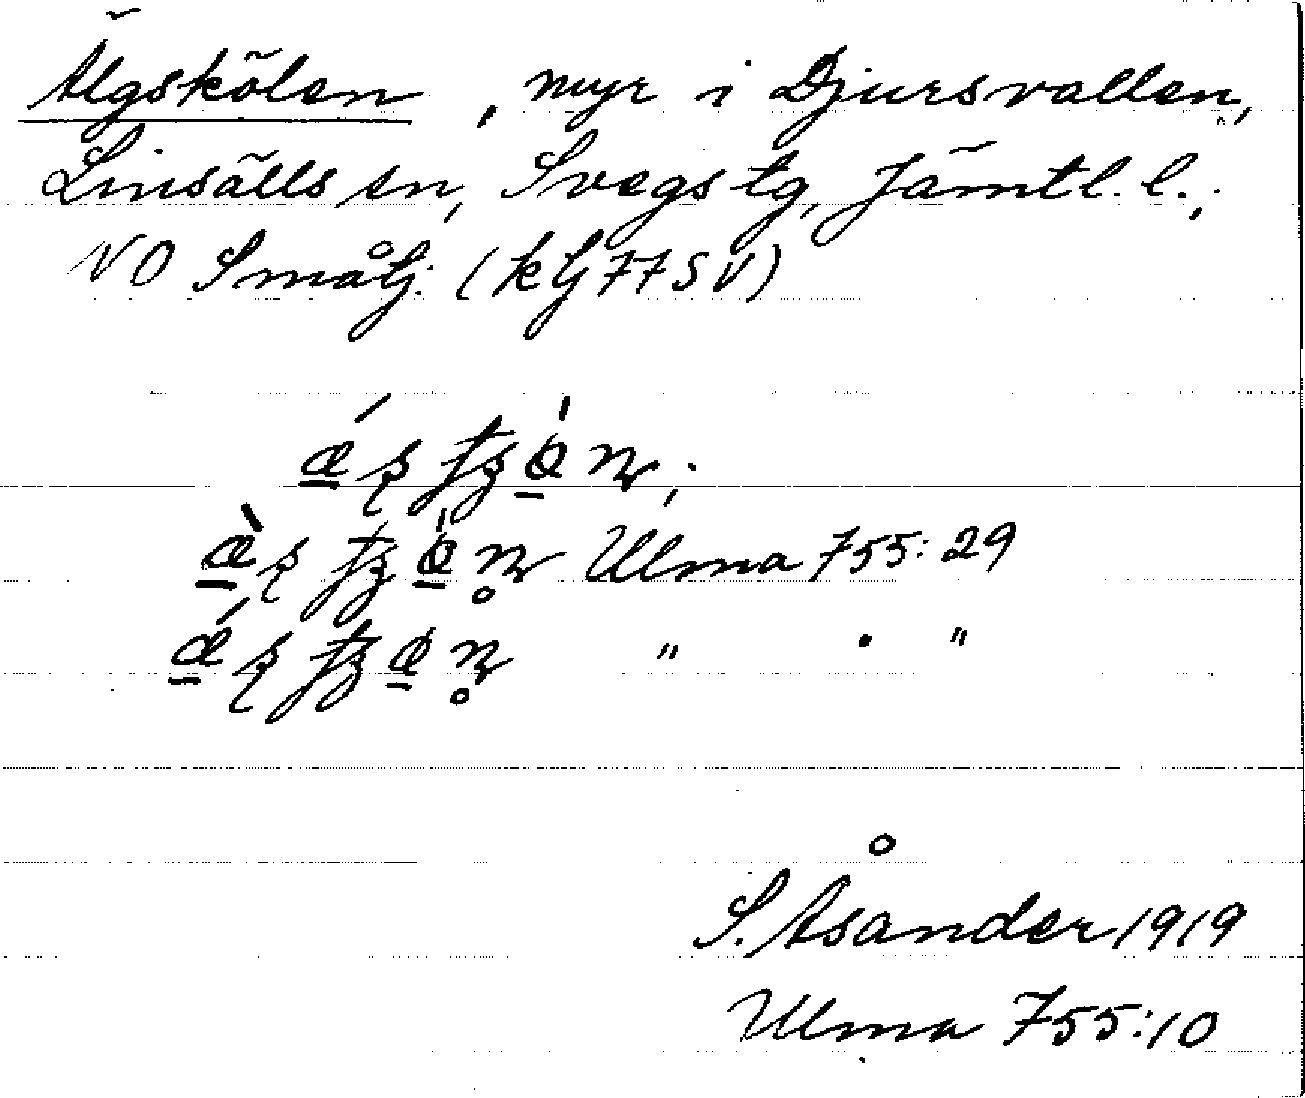 Älgskölen, myr i Djursvallen,
Linsälls sn, Svegs tg, Jämtl. l.,
NO Småtj. (ktj 77SV)
Ulma 755:29
" . "
S. Åsander 1919
Ulma 755:10